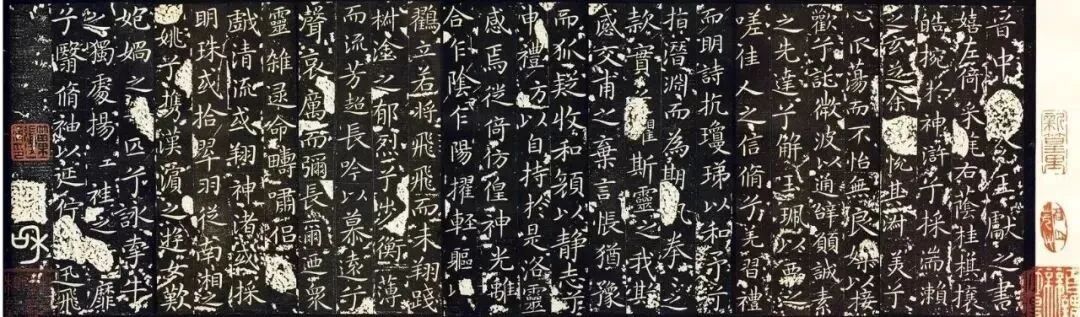 晉中令王獻之書
嬉左倚采旄右蔭桂旗攘
皓捥於神滸兮採湍瀨
之玄芝余悅其淑美兮
心振蕩而不怡無良媒以接
歡兮託微波以通辭願誠素
之先達兮解玉珮以要之
嗟佳人之信脩兮羌習禮
而明詩抗瓊珶以和予兮
指潛淵而為期執拳之
款實兮懼斯靈之我欺
感交甫之棄言悵猶豫
而狐疑收和顏以靜志兮
申禮防以自持於是洛靈
感焉徙倚彷徨神光離
合乍陰乍陽擢輕軀以
鸛立若將飛而未翔踐
椒塗之郁烈兮步衡薄
而流芳超長吟以慕遠兮
聲哀厲而彌長爾迺眾
靈雜遝命疇嘯侶或
戲清流或翔神渚或採
明珠或拾翠羽從南湘之
姚兮携漢濱之遊女歎
媧之匹兮詠牽牛
之獨處揚袿之靡
兮翳脩袖以延佇迅飛